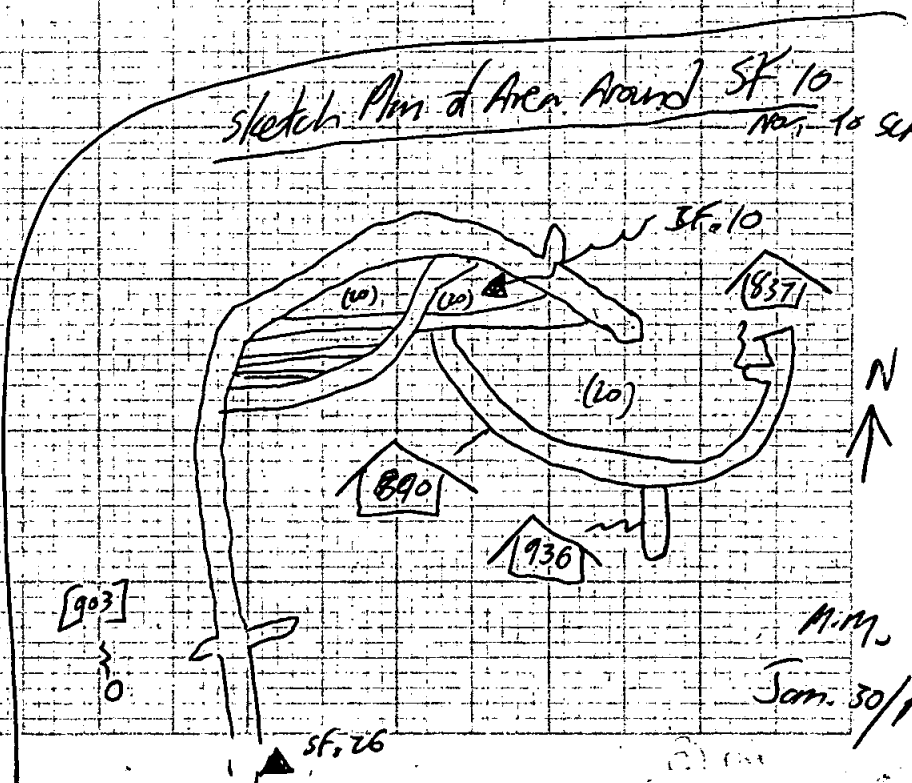 Sketch Plan of Area Around SF 10
Not to
SF.10
837
(20)
(20)
(20)
N
890
936
903
M.M.
Jan. 30/
SF.26